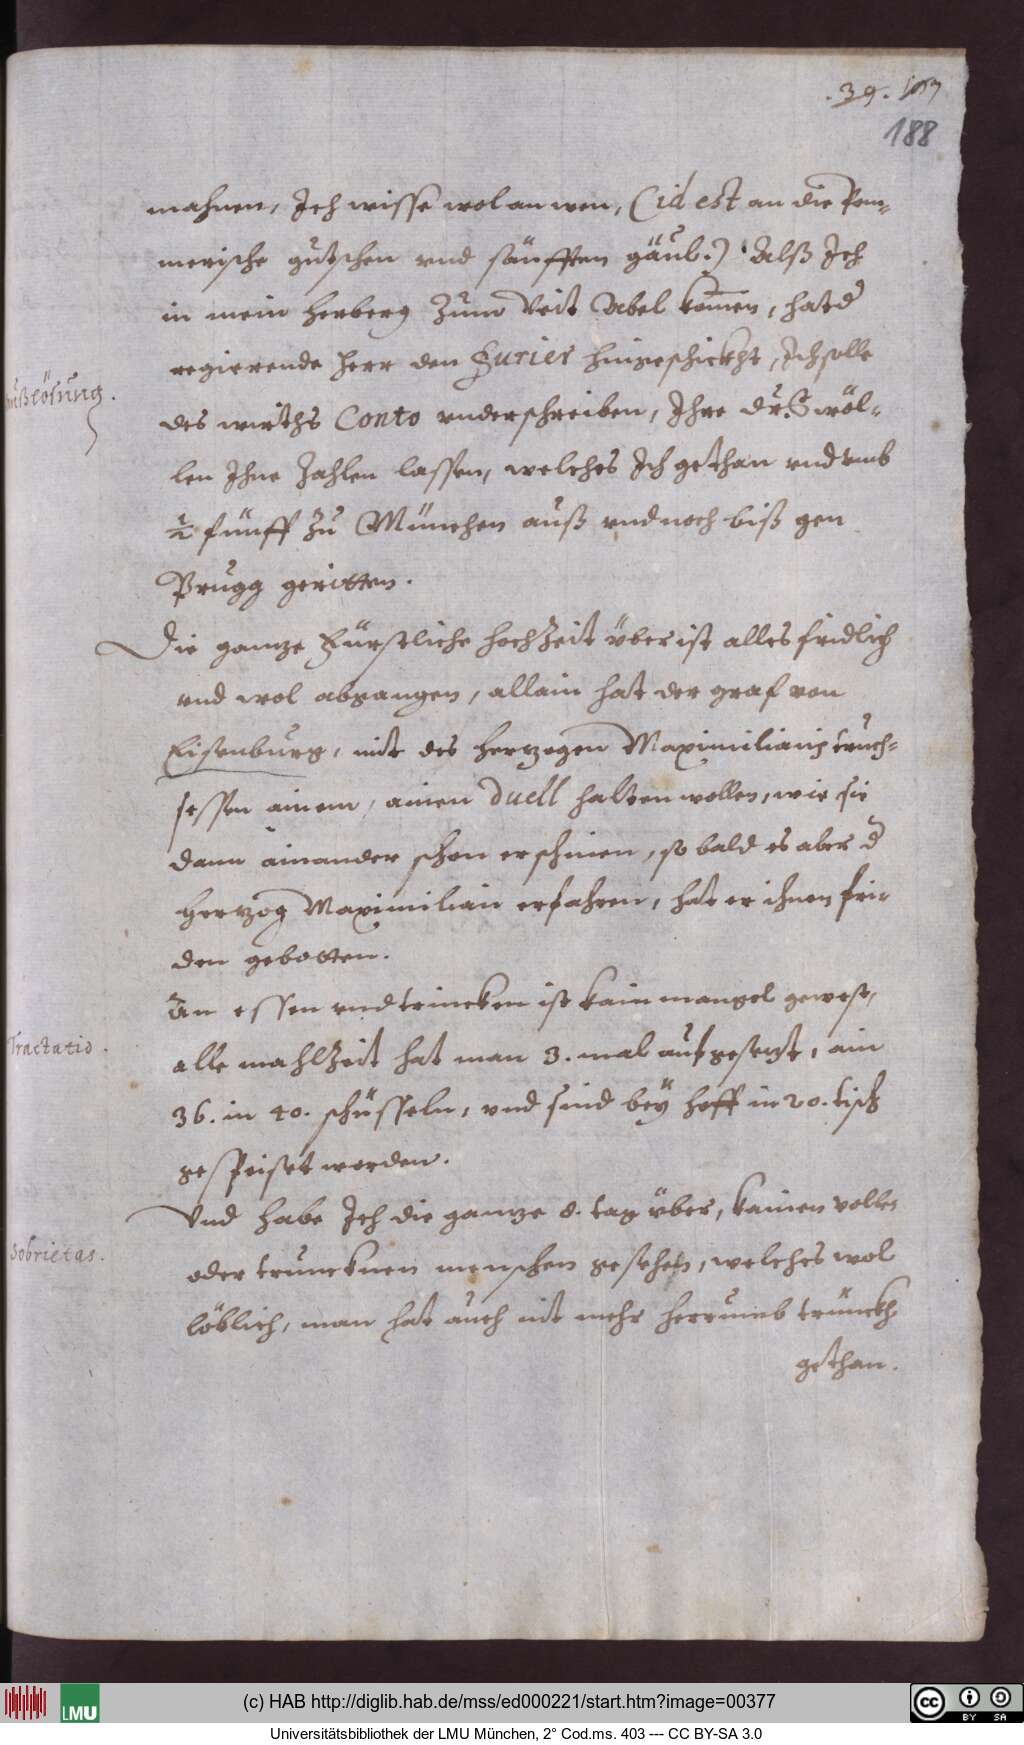 .39. 107
188
mahnen, Ich wisse wol an wen, (id est an die Pom-
merische gutschen vnd säufften gäul.) Alß Ich
in mein herberg zum Veit Abel komen, hat d
regierende herr den Furier hingeschickht, Ich solle
Außlösung.
des wirths Conto vnderschreiben, Ihre dr. wöl-
len Ihne zahlen lassen, welches Ich gethan vnd vmb
½ fünff zu München auß vnd noch biß gen
Prugg geritten.
Die gantze Fürstliche hochzeit über ist alles fridlich
vnd wol abgangen, allain hat der graf von
Eisenburg, mit des hertzogen Maximilians truch-
sessen ainem, ainen duell halten wollen, wie sie
dann ainander schon erschinen, so bald es aber d
hertzog Maximilian erfahren, hat er ihnen fri-
den gebotten.
An essen vnd trincken ist kain mangel gewest,
Tractatio.
alle mahlzeit hat man 3. mal aufgesetzt, ain
36. in 40. schüsseln, vnd sind bey hoff in 20. tisch
gespeiset worden.
Vnd habe Ich die gantze 8. tag über, kainen vollen
Sobrietas.
oder truncknen menschen gesehen, welches wol
löblich, man hat auch nit mehr herrumb trünckh
gethan.
(c) HAB http://diglib.hab.de/mss/ed000221/start.htm?image=00377
LMU
cc BY SA
Universitätsbibliothek der LMU München, 2° Cod.ms. 403 --- CC BY-SA 3.0